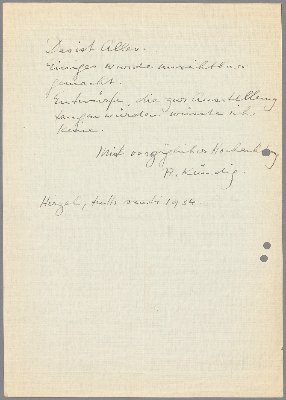 Das ist Alles.
Einiges wurde unsichtbar
gemacht.
Entwürfe, die zur Ausstellung
taugen würden wüsste ich
keine.
Mit vorzüglicher Hochachtung
R. Kündig.
Hirzel, 1934